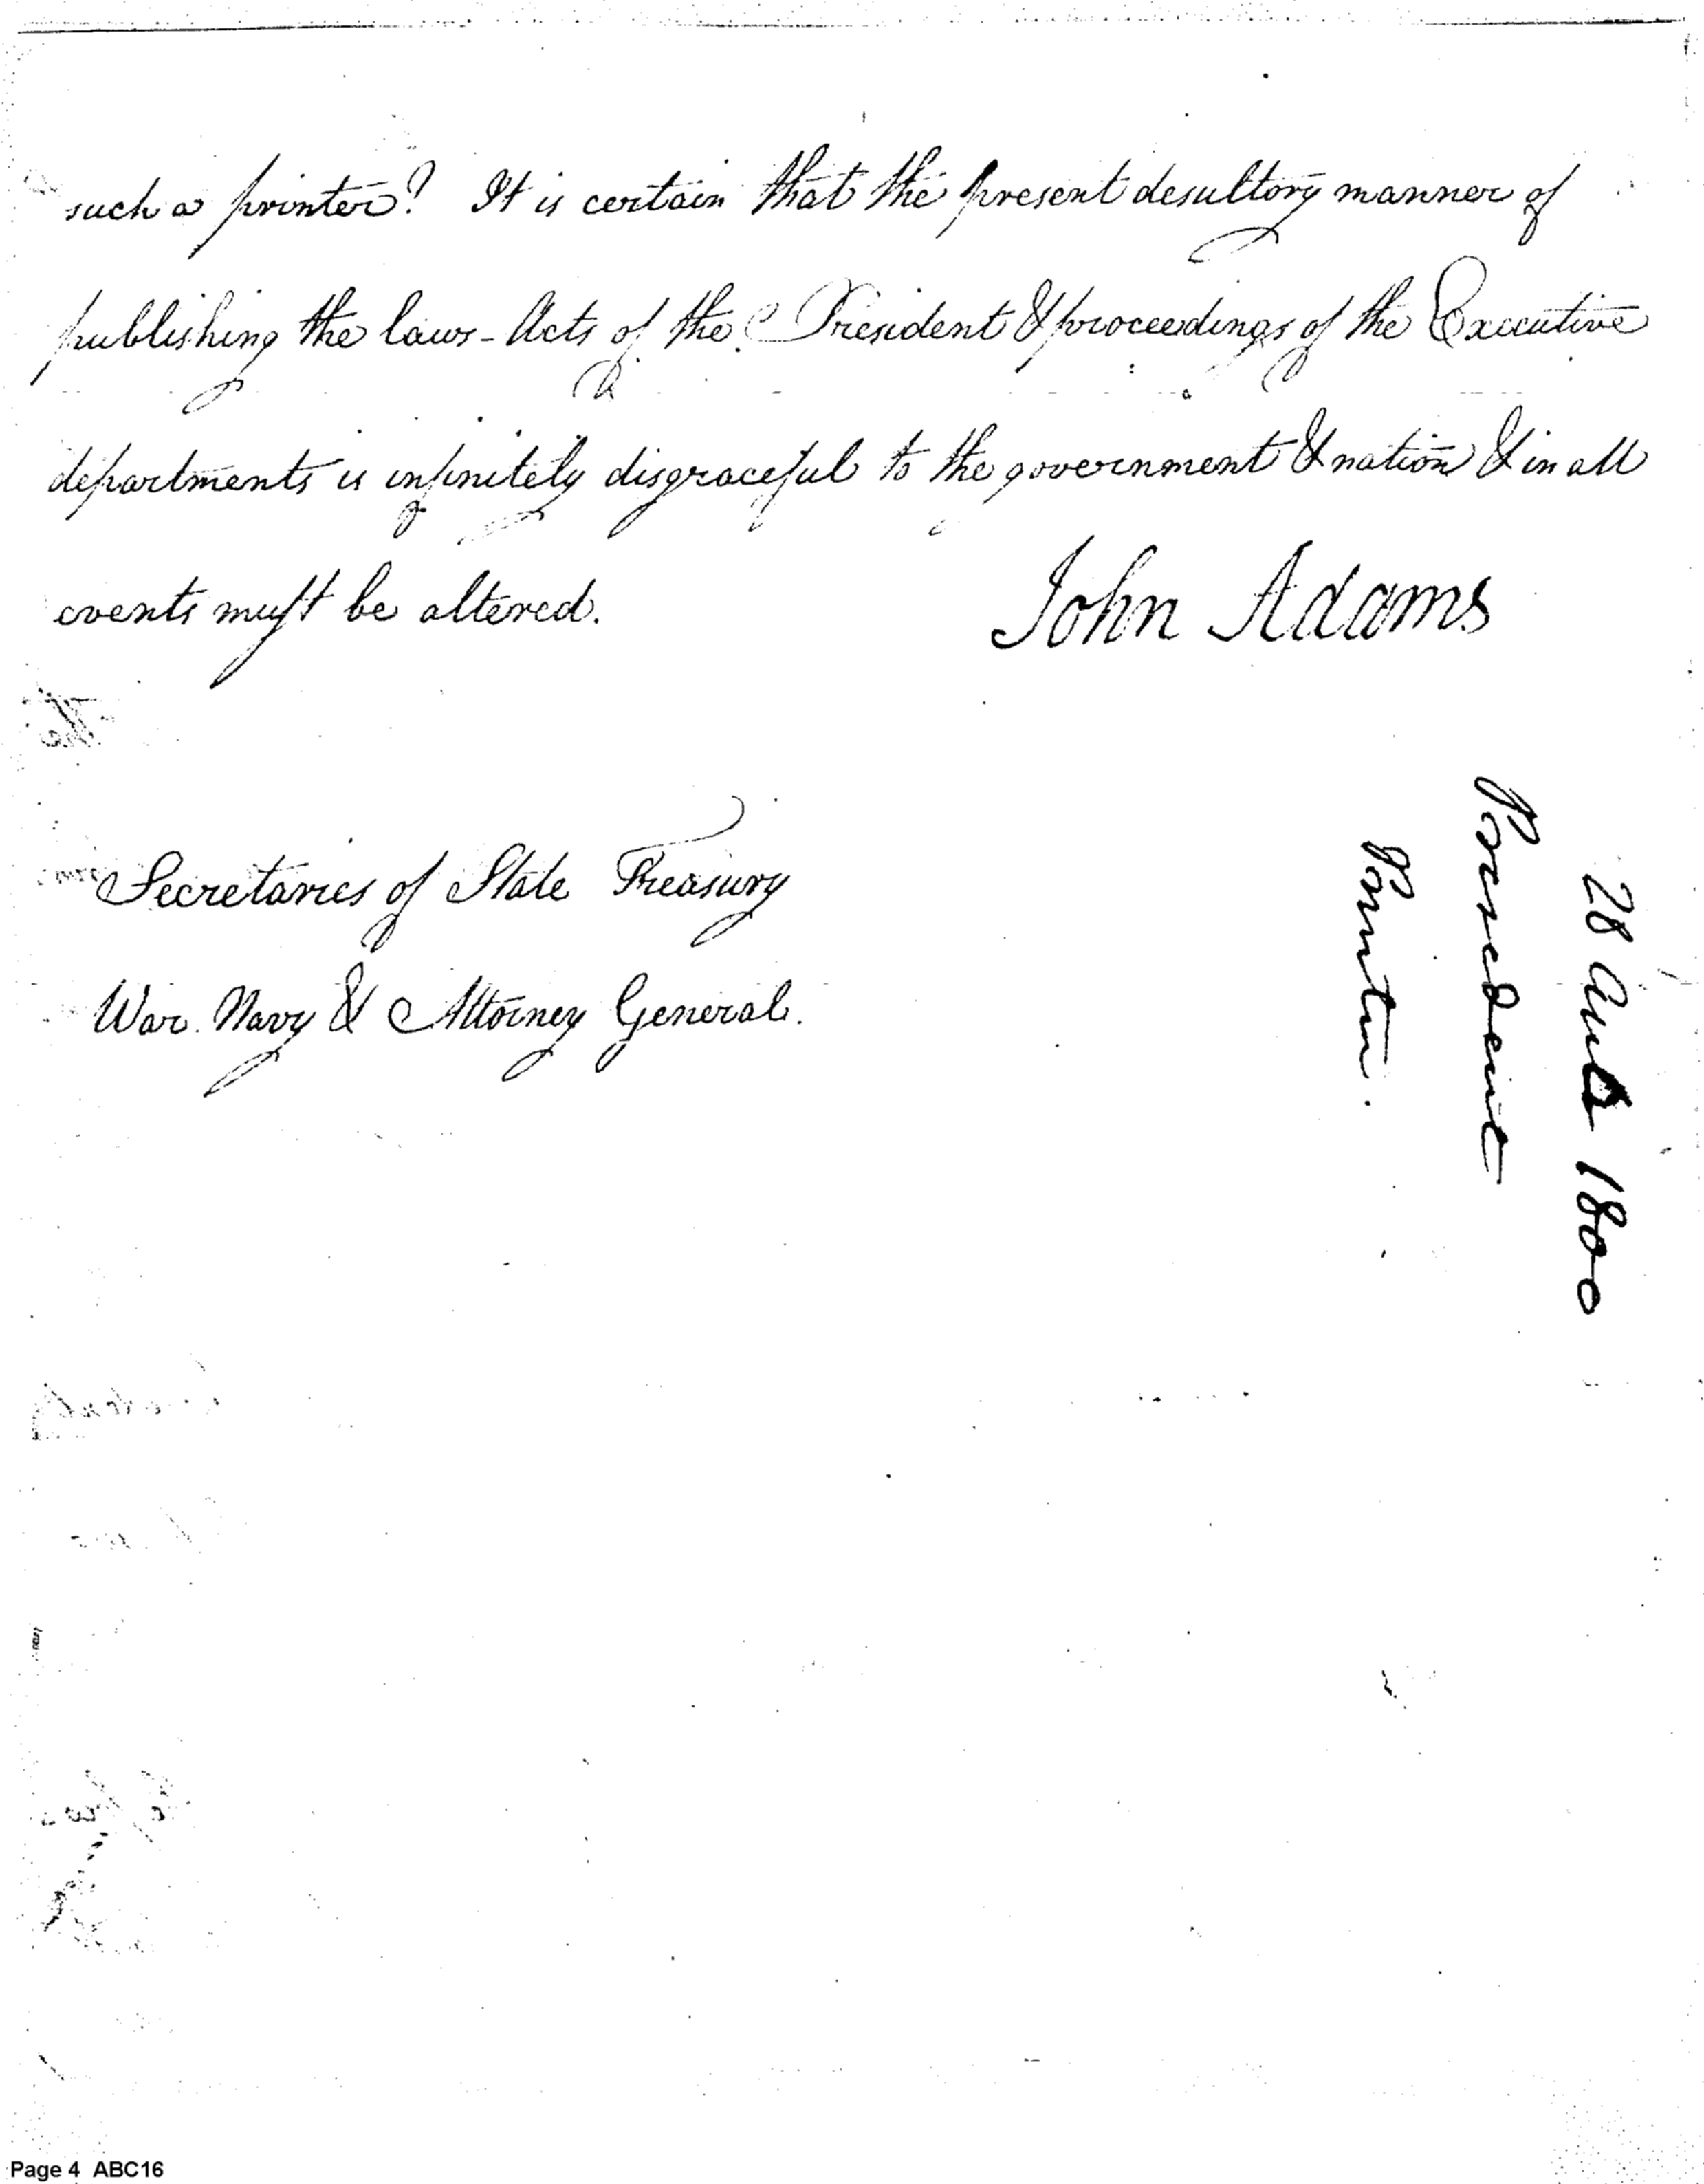 such a printer? It is certain that the present desultory manner of
publishing the laws - Acts of the President & proceedings of the Executive
departments is infinitely disgraceful to the government & nation & in all
events must be altered.
John Adams
Secretaries of State Treasury
War. Navy & Attorney General.
28 Aug 1800
President
Printer.
Page 4 ABC16